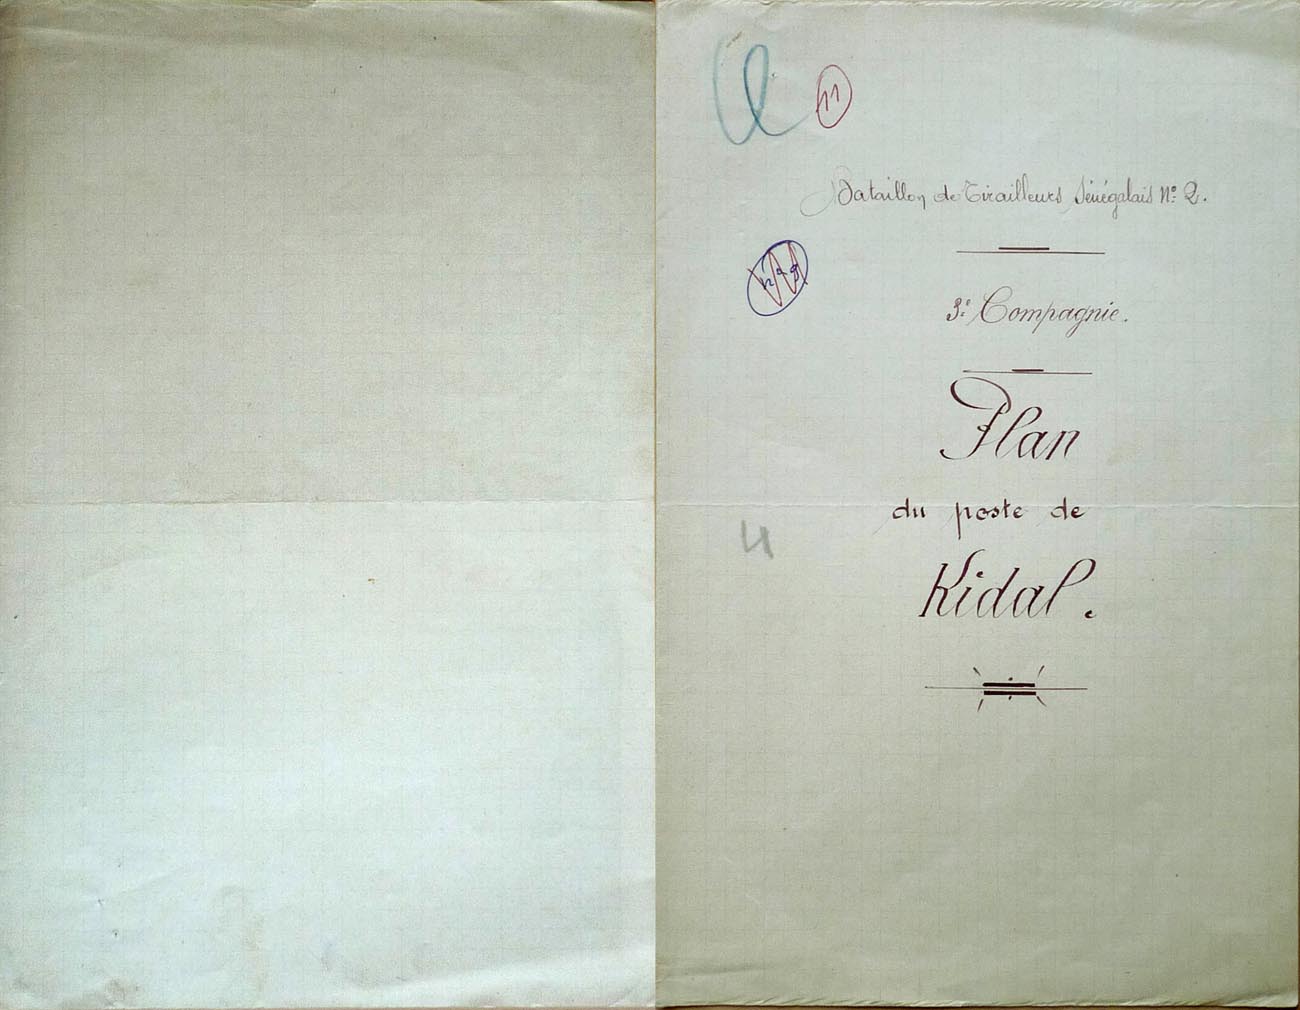 11
Bataillon de Tirailleurs Sénégalais N° 2.
3e Compagnie.
Plan
du poste de
Kidal.